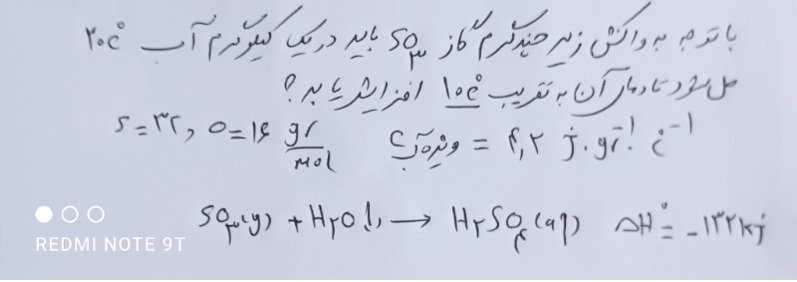 با توجه به واکنش زیر چندگرم گاز SO۳ باید در یک کیلوگرم آب ۲۰c°
حل شود تا دمای آن به تقریب ۱۰c° افزایش یابد؟
S=۳۲, O=۱۶ gr/mol ویژه آب c = ۴,۲ j.gr⁻¹.c⁻¹
SO۳(g) + H۲O(l) → H۲SO۴(aq) ΔH° = -۱۳۲kj
REDMI NOTE 9T